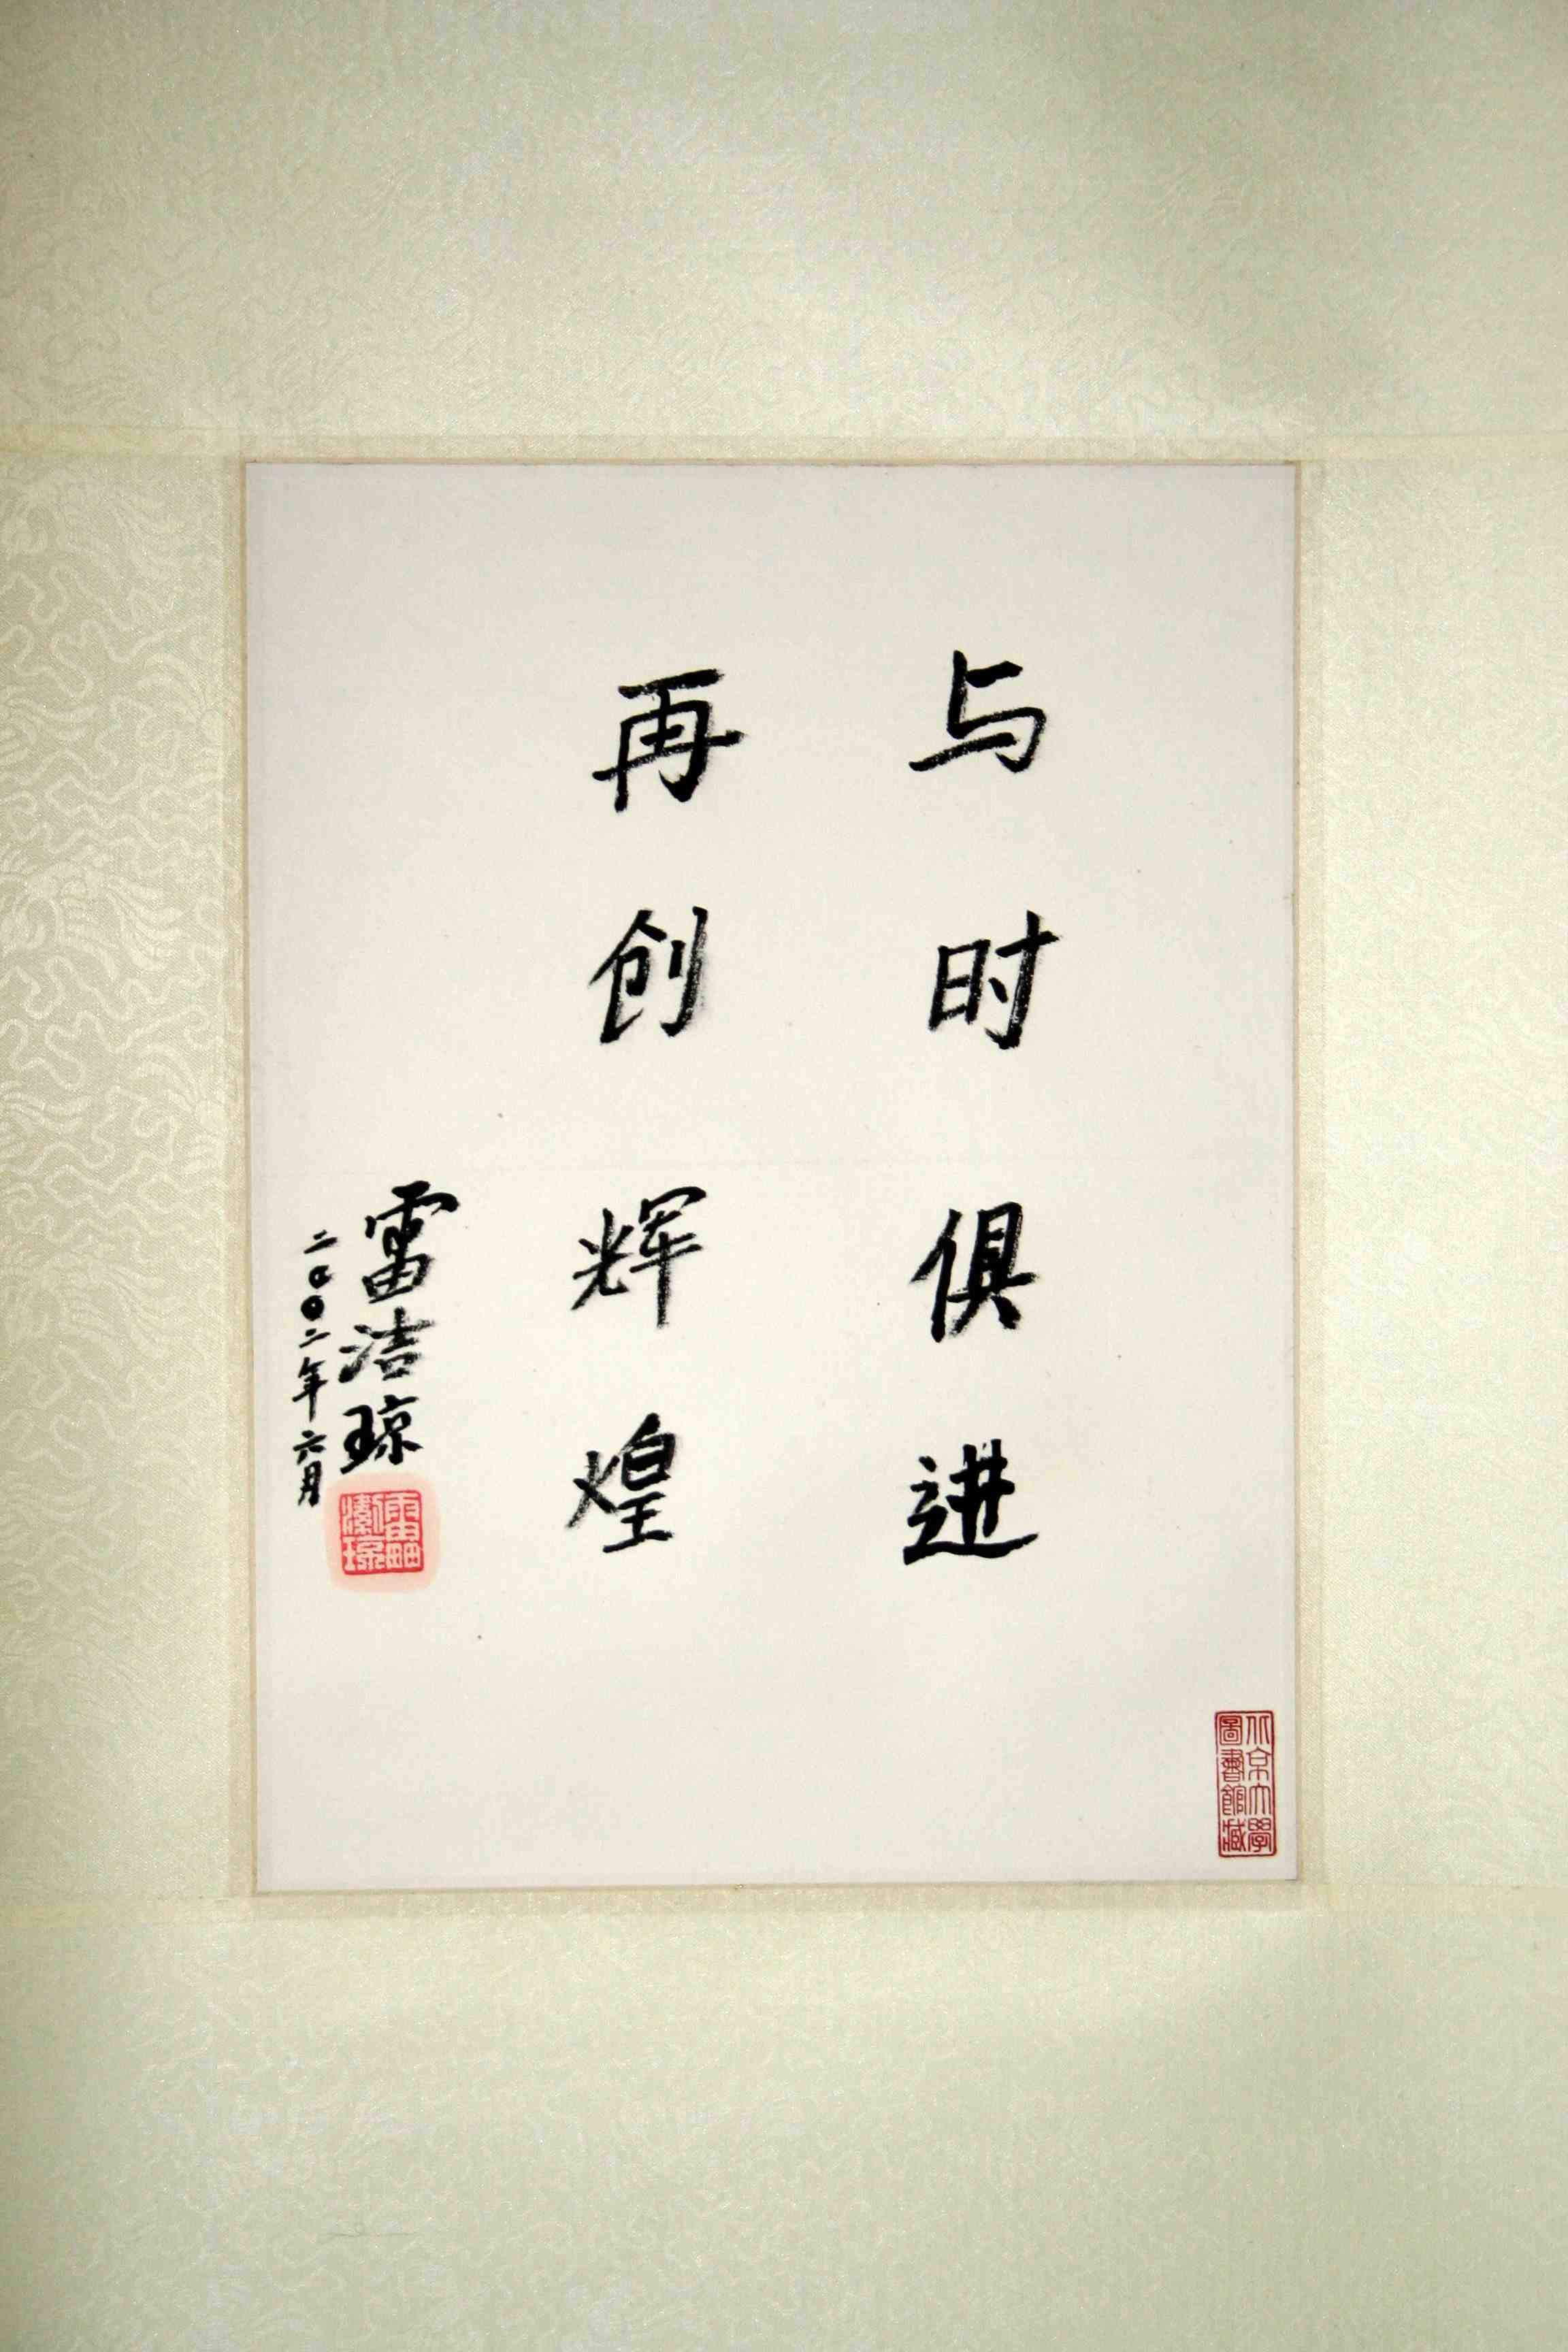 与时俱进
再创辉煌
雷洁琼
二〇〇二年六月
雷潔瓊
北京大學
圖書館藏